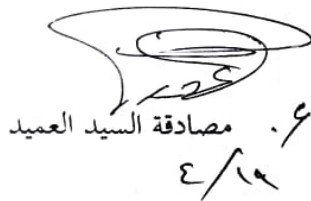 مصادقة السيد العميد
٤/١٩